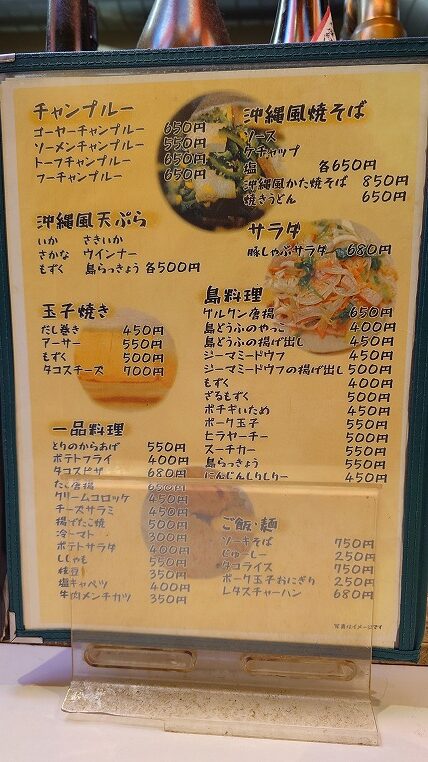 チャンプルー
ゴーヤーチャンプルー 650円
ソーメンチャンプルー 550円
トーフチャンプルー 650円
フーチャンプルー 650円
沖縄風焼そば
ソース
ケチャップ
塩 各650円
沖縄風かた焼そば 850円
焼きうどん 650円
沖縄風天ぷら
いか さきいか
さかな ウインナー
もずく 島らっきょう 各500円
サラダ
豚しゃぶサラダー 680円
玉子焼き
だし巻き 450円
アーサー 550円
もずく 500円
タコスチーズ 700円
島料理
グルクン唐揚 650円
島どうふのやっこ 400円
島どうふの揚げ出し 450円
ジーマミードウフ 450円
ジーマミードウフの揚げ出し 500円
もずく 400円
ざるもずく 500円
ポチギいため 450円
ポーク玉子 550円
ヒラヤーチー 500円
スーチカー 550円
島らっきょう 550円
にんじんしりしりー 450円
一品料理
とりのからあげ 550円
ポテトフライ 400円
タコスピザ 680円
だし唐揚 650円
クリームコロッケ 450円
チーズサラミ 450円
揚げたこ焼 500円
冷トマト 300円
ポテトサラダ 400円
ししゃも 550円
枝豆 350円
塩キャベツ 400円
牛肉メンチカツ 350円
ご飯・麺
ソーキそば 750円
じゅーしー 250円
タコライス 750円
ポーク玉子おにぎり 250円
レタスチャーハン 680円
写真はイメージです